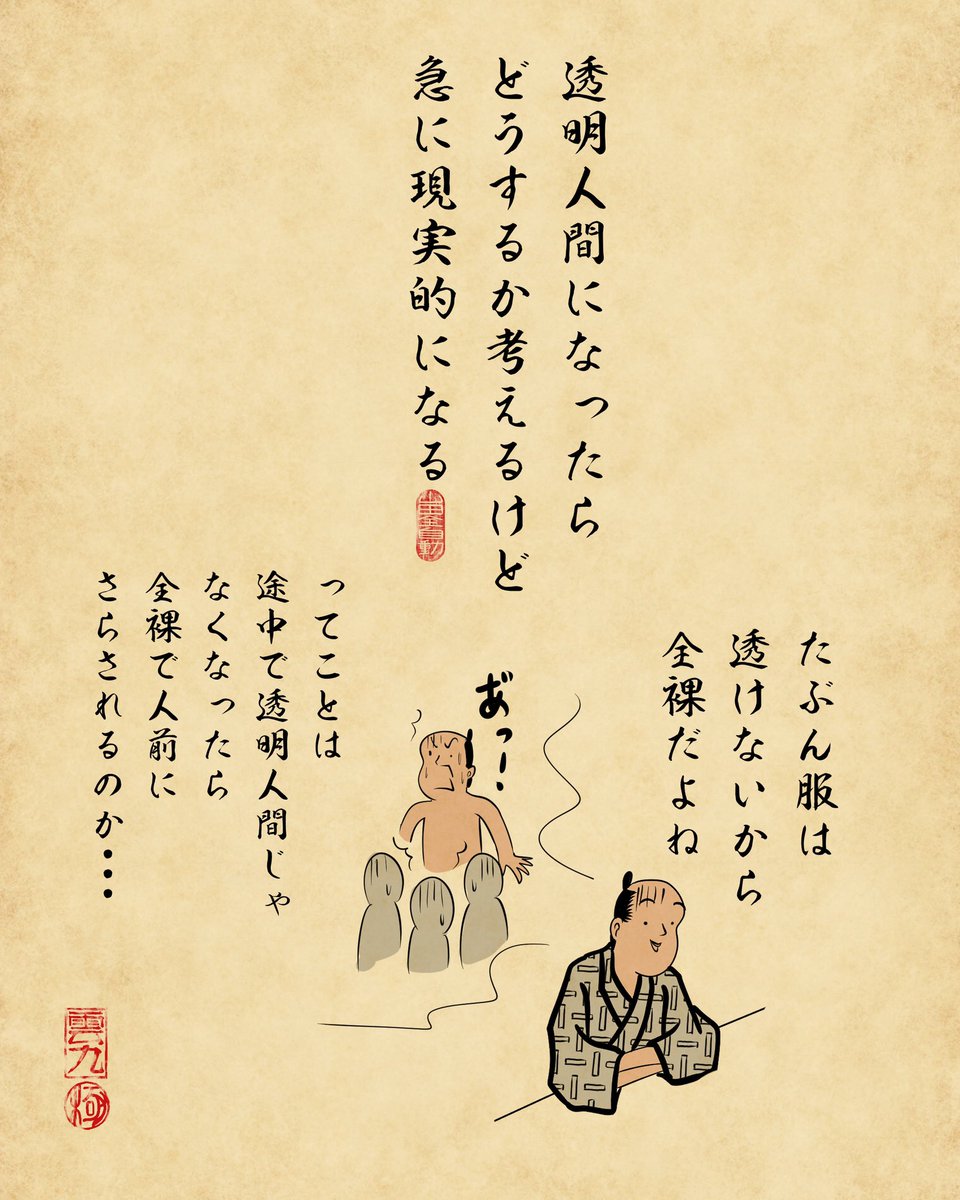 透明人間になったら
どうするか考えるけど
急に現実的になる
たぶん服は
透けないから
全裸だよね
あ゛っ!
ってことは
途中で透明人間じゃ
なくなったら
全裸で人前に
さらされるのか・・・